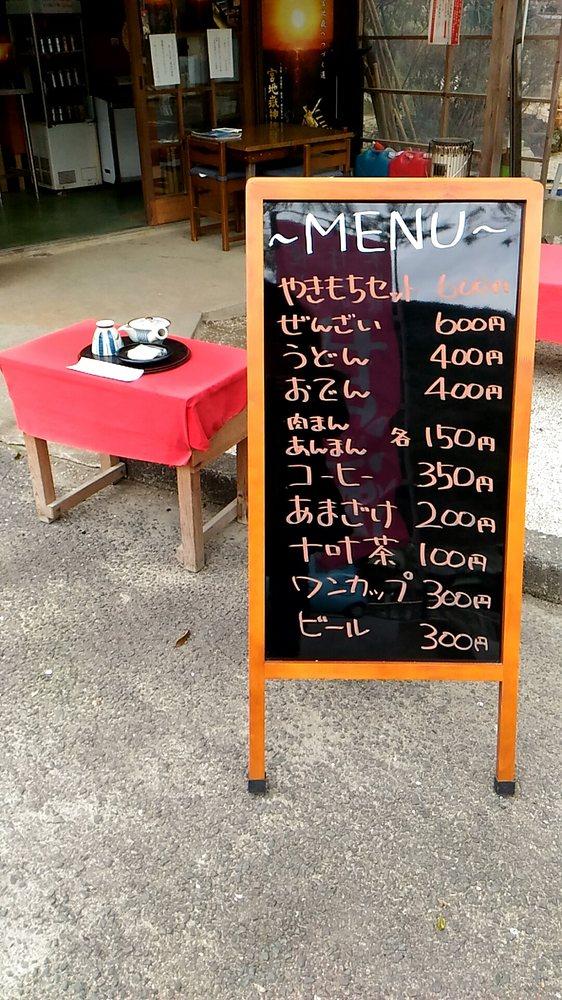 ~MENU~
やきもちセット 600円
ぜんざい 600円
うどん 400円
おでん 400円
肉まん
あんまん 各150円
コーヒー 350円
あまざけ 200円
十叶茶 100円
ワンカップ 300円
ビール 300円
宮地嶽神